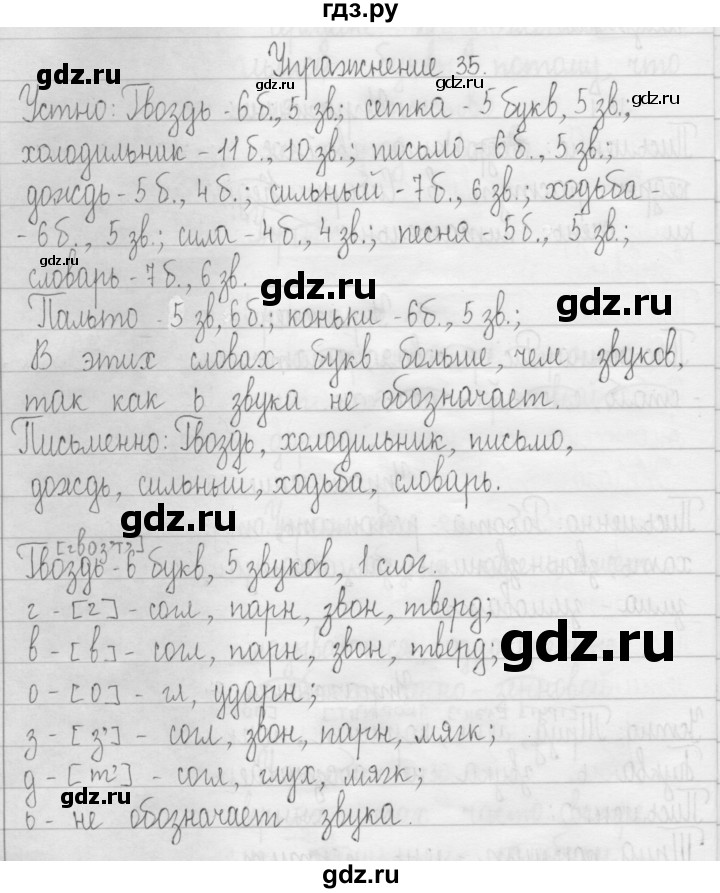 гдз.ру
Упражнение 35.
Устно: Гвоздь - 6б., 5 зв.; сетка - 5 букв, 5 зв.;
холодильник - 11 б., 10 зв., письмо - 6 б., 5 зв.;
дождь - 5 б., 4 б.; сильный - 7б., 6 зв.; ходьба -
- 6 б., 5 зв.; сила - 4 б., 4 зв.; песня 5б., 5 зв.;
словарь - 7 б., 6 зв.
Пальто - 5 зв, 6 б.; коньки - 6б., 5 зв.;
В этих словах букв больше, чем звуков,
так как ь звука не обозначает.
Письменно: Гвоздь, холодильник, письмо,
дождь, сильный, ходьба, словарь.
[гвоз'т']
Гвоздь - 6 букв, 5 звуков, 1 слог.
г - [г] - согл, парн, звон, тверд;
в - [в] - согл, парн, звон, тверд;
о - [о] - гл, ударн;
з - [з'] - согл, звон, парн, мягк;
д - [т'] - согл, глух, мягк;
ь - не обозначает звука.
gdz.ru
gdz.ru
gdz.ru
gdz.ru
gdz.ru
gdz.ru
gdz.ru
gdz.ru
gdz.ru
gdz.ru
gdz.ru
gdz.ru